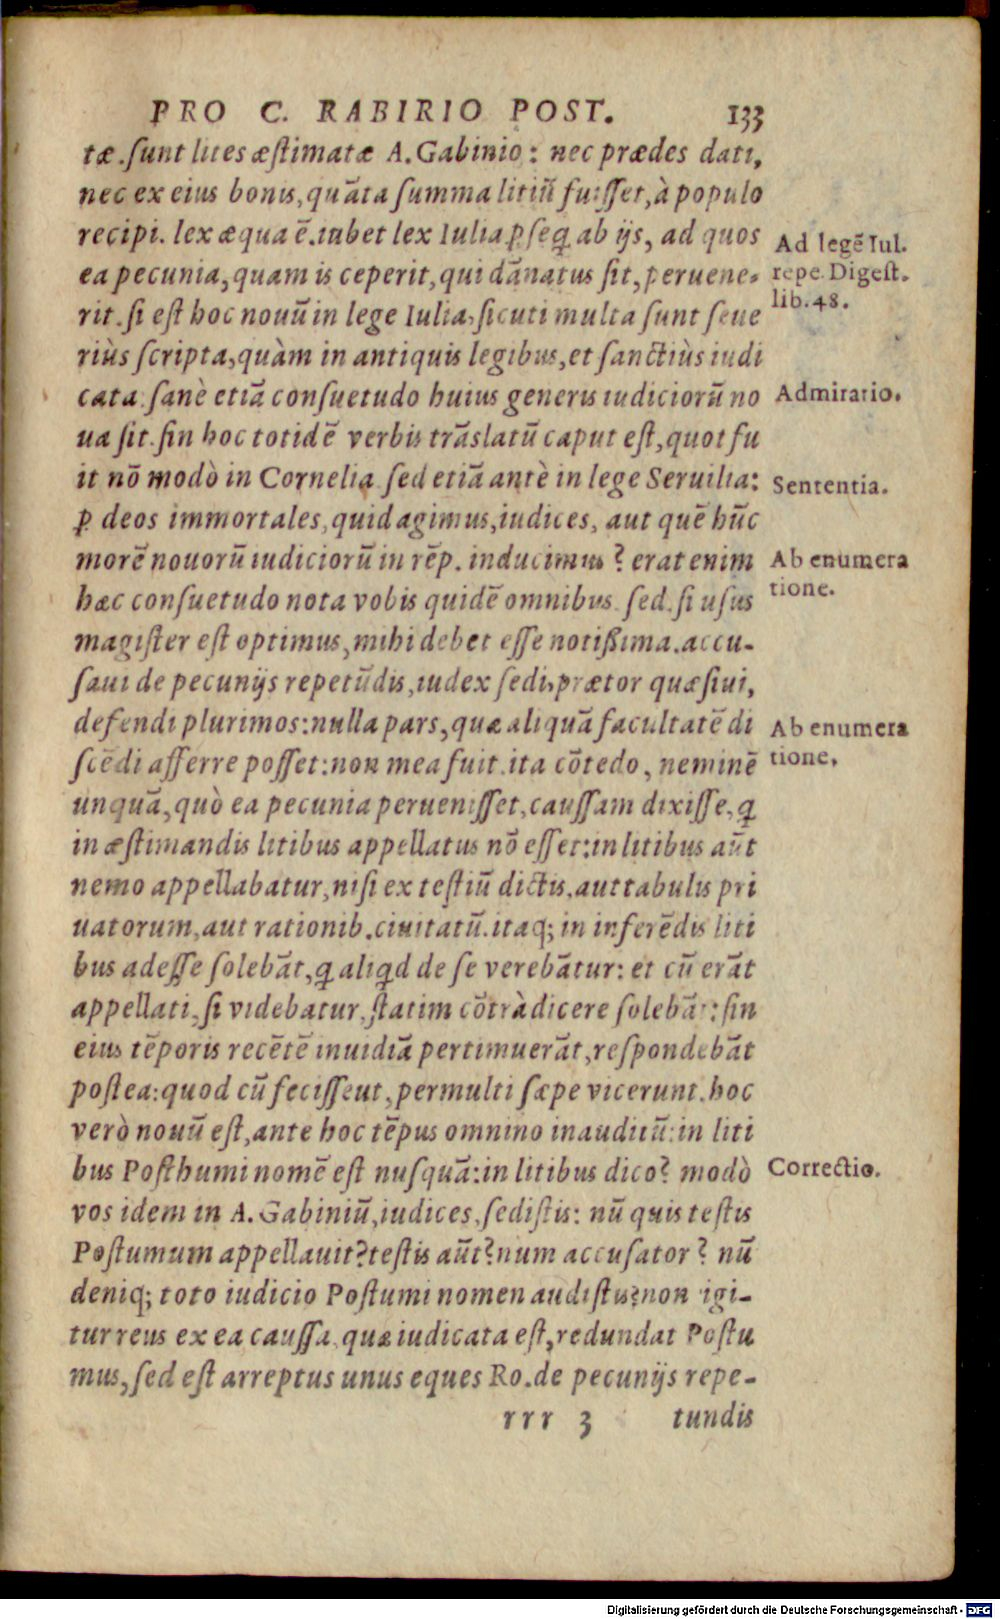 PRO C. RABIRIO POST. 133
tæ. ſunt lites æſtimatæ A. Gabinio: nec prædes dati,
nec ex eius bonis, quãta ſumma litiũ fuiſſet, à populo
recipi. lex æqua ẽ. iubet lex Iulia ꝑſeq̃ ab ijs, ad quos
ea pecunia, quam is ceperit, qui dãnatus ſit, peruene-
rit. ſi eſt hoc nouũ in lege Iulia, ſicuti multa ſunt ſeue
riùs ſcripta, quàm in antiquis legibus, et ſanctiùs iudi
cata: ſanè etiã conſuetudo huius generis iudiciorũ no
ua ſit. ſin hoc totidẽ verbis trãslatũ caput eſt, quot fu
it nõ modò in Cornelia ſed etiã antè in lege Seruilia:
ꝑ deos immortales, quid agimus, iudices, aut quẽ hũc
morẽ nouorũ iudiciorũ in rẽp. inducimus? erat enim
hæc conſuetudo nota vobis quidẽ omnibus. ſed. ſi uſus
magiſter eſt optimus, mihi debet eſſe notißima. accu-
ſaui de pecunijs repetũdis, iudex ſedi, prætor quæſiui,
defendi plurimos: nulla pars, quæ aliquã facultatẽ di
ſcẽdi afferre poſſet: non mea fuit. ita cõtedo, neminẽ
unquã, quò ea pecunia perueniſſet, cauſſam dixiſſe, q̃
in æſtimandis litibus appellatus nõ eſſet: in litibus aũt
nemo appellabatur, niſi ex teſtiũ dictis, aut tabulis pri
uatorum, aut rationib. ciuitatũ. itaq; in inferẽdis liti
bus adeſſe ſolebãt, q̃ aliq̃d de ſe verebãtur: et cũ erãt
appellati, ſi videbatur, ſtatim cõtrà dicere ſolebãt: ſin
eius tẽporis recẽtẽ inuidiã pertimuerãt, reſpondebãt
poſtea: quod cũ feciſſeut, permulti ſæpe vicerunt. hoc
verò nouũ eſt, ante hoc tẽpus omnino inauditũ: in liti
bus Poſthumi nomẽ eſt nuſquã: in litibus dico? modò
vos idem in A. Gabiniũ, iudices, ſediſtis: nũ quis teſtis
Poſtumum appellauit? teſtis aũt? num accuſator? nũ
deniq; toto iudicio Poſtumi nomen audiſtis? non igi-
tur reus ex ea cauſſa, quæ iudicata eſt, redundat Poſtu
mus, ſed eſt arreptus unus eques Ro. de pecunijs repe-
rrr 3 tundis
Ad legẽ Iul.
repe. Digeſt.
lib. 48.
Admiratio.
Sententia.
Ab enumera
tione.
Ab enumera
tione.
Correctio.
Digitalisierung gefördert durch die Deutsche Forschungsgemeinschaft - DFG